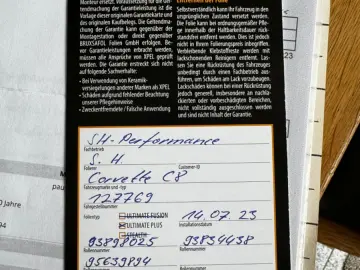 Monteur ersetzt. Voraussetzung für die Gel-
tendmachung der Garantieleistung ist die
Vorlage dieser originalen Garantiekarte und
des originalen Kaufbelegs. Die Geltendma-
chung der Garantie kann gegenüber der
Montagestation oder direkt gegenüber
BRUXSAFOL Folien GmbH erfolgen. Be-
vor Garantieleistungen erbracht werden,
müssen alle Ansprüche von XPEL geprüft
werden. Die Garantie erstreckt sich nicht
auf folgende Sachverhalte:
• Bei Verwendung von Keramik-
versiegelungen anderer Marken als XPEL
• Schäden aufgrund fehlender Beachtung
unserer Pflegehinweise
• Zweckentfremdete / falsche Anwendung
Entfernen der Folie
Selbstverständlich kann Ihr Fahrzeug in den
ursprünglichen Zustand versetzt werden.
Die Folie kann bei ordnungsgemäßer Pfle-
ge innerhalb der Haltbarkeitsdauer rück-
standsfrei entfernt werden. Dies ist jedoch
nicht in Ihren Folierungspreis inbegriffen.
Verbleibende Klebstoffreste werden mit
lackschonenden Reinigern entfernt. Las-
sen Sie eine Rückrüstung des Fahrzeuges
unbedingt durch einen Fachbetrieb durch-
führen, um Schäden am Lack vorzubeugen.
Lackschäden können bei einer Rückrüstung
jedoch generell, insbesondere an nachla-
ckierten oder vorbeschädigten Bereichen,
nicht vollständig ausgeschlossen werden
und sind nicht Inhalt der Garantie.
SH-Performance
Fachbetrieb
S. H.
Folierer
Customer-ID
Corvette C8
Fahrzeugmarke und -typ
127769
Fahrgestellnummer
Folientyp
ULTIMATE FUSION
ULTIMATE PLUS
STEALTH
14.07.23
Installationsdatum
93898025
93834438
Rollennummer
Rollennummer
95639894
0 Jahre
94